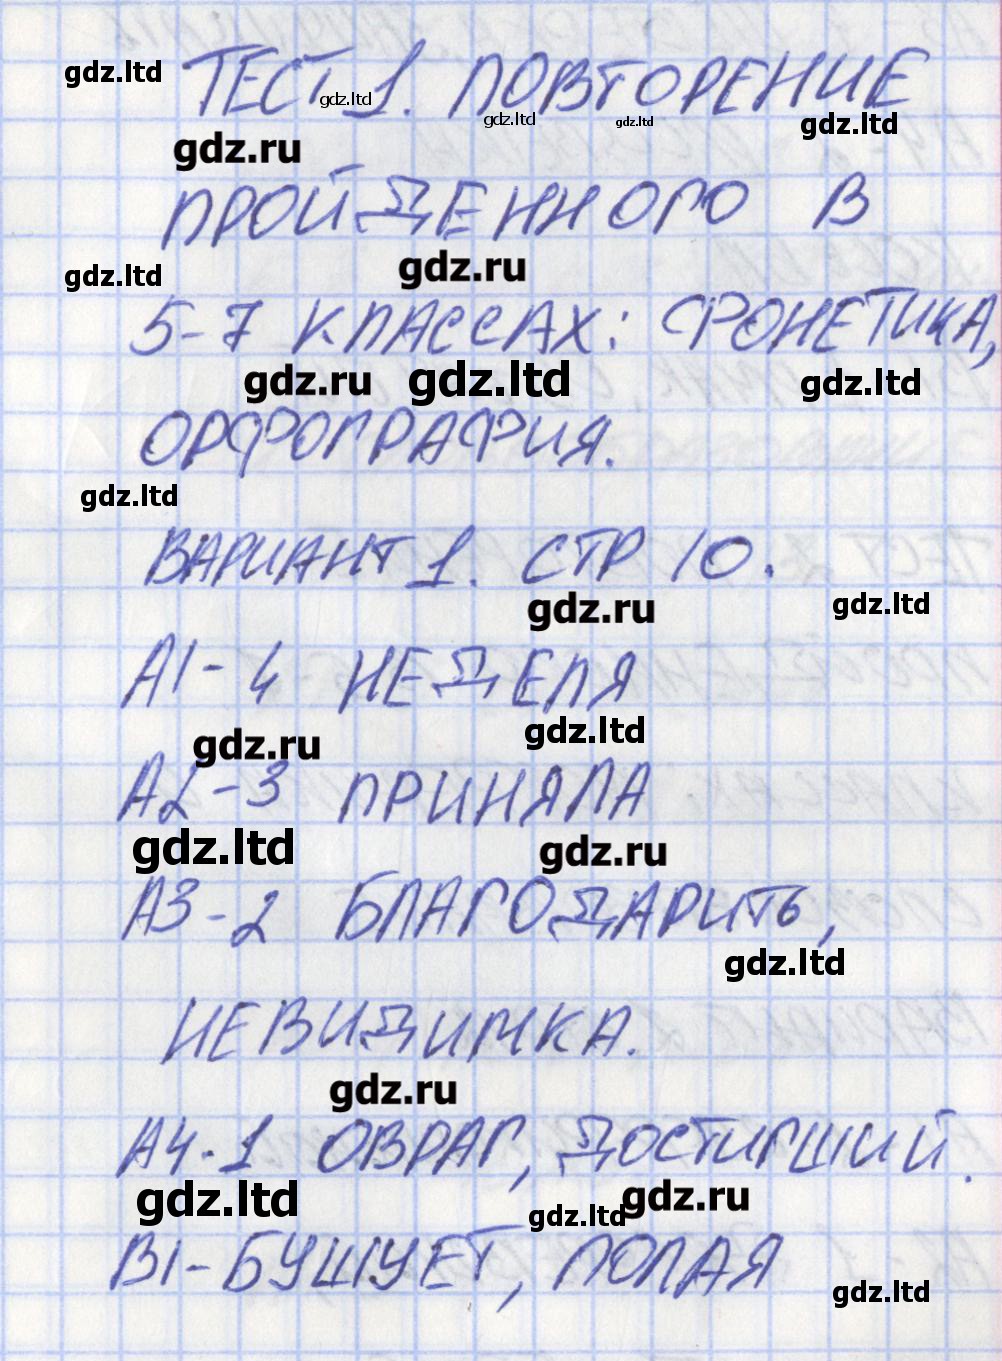 gdz.ltd
ТЕСТ 1. ПОВТОРЕНИЕ
gdz.ltd
gdz.ltd
gdz.ltd
gdz.ltd
gdz.ru
ПРОЙДЕННОГО В
gdz.ltd
gdz.ru
5-7 КЛАССАХ: ФОНЕТИКА,
gdz.ru
gdz.ltd
gdz.ltd
ОРФОГРАФИЯ.
gdz.ltd
ВАРИАНТ 1. СТР 10.
gdz.ru
gdz.ltd
А1-4 НЕДЕЛЯ
gdz.ru
gdz.ltd
А2-3 ПРИНЯЛА
gdz.ltd
gdz.ru
А3-2 БЛАГОДАРИТЬ,
gdz.ltd
НЕВИДИМКА.
gdz.ru
А4-1 ОВРАГ, ДОСТИГШИЙ.
gdz.ltd
gdz.ru
gdz.ltd
В1-БУШУЕТ, ПОЛАЯ
gdz.ltd